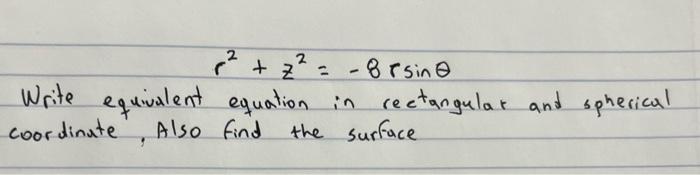 r² + z² = -8 r sin θ
Write equivalent equation in rectangular and spherical
coordinate, Also find the surface